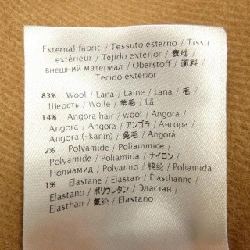 External fabric / Tessuto esterno / Tissu
extérieur / Tejido exterior / 表地 /
внешний материал / Oberstoff / 面料 /
Tecido exterior
83% Wool / Lana / Laine / Lana / 毛 /
Шерсть / Wolle / 羊毛 / Lã
14% Angora hair / Wool / Angora /
Angora / Angora / アンゴラ / Ангора /
Angora (-kanin) / 兔毛 / Angora
2% Polyamide / Poliammide /
Polyamide / Poliamida / ナイロン /
Полиамид / Polyamid / 锦纶 / Poliamida
1% Elastane / Elastan / Élasthanne /
Elastano / ポリウレタン / Эластан /
Elasthan / 氨纶 / Elastano